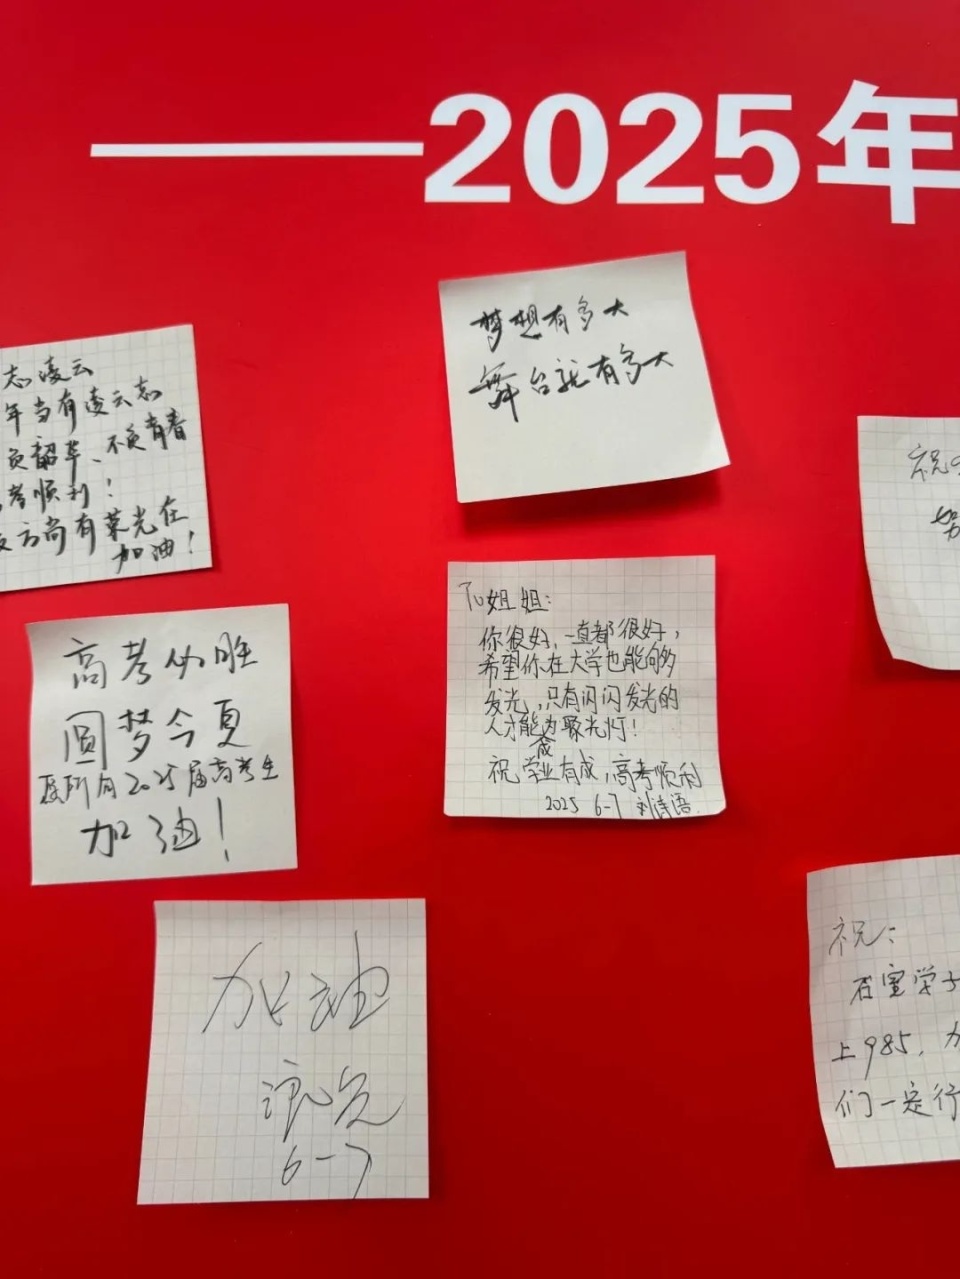 ——2025年
梦想有多大
舞台就有多大
志凌云
年当有凌云志
负韶华、不负青春
考顺利！
方尚有荣光在
加油！
祝
努
To 姐姐：
你很好，一直都很好，
希望你在大学也能够多
发光，只有闪闪发光的
人才能成为聚光灯！
祝 学业有成，高考顺利
2025 6-7 刘诗语
高考必胜
圆梦今夏
愿所有2025届高考生
加油！
加油
6-7
祝：
石室学子
上985，
们一定行